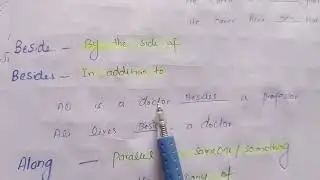 He never
Beside - By the side of
Besides - In addition to
Ali is a doctor Besides a professor
Ali lives Beside a doctor
Along - Parallel someone/something
of